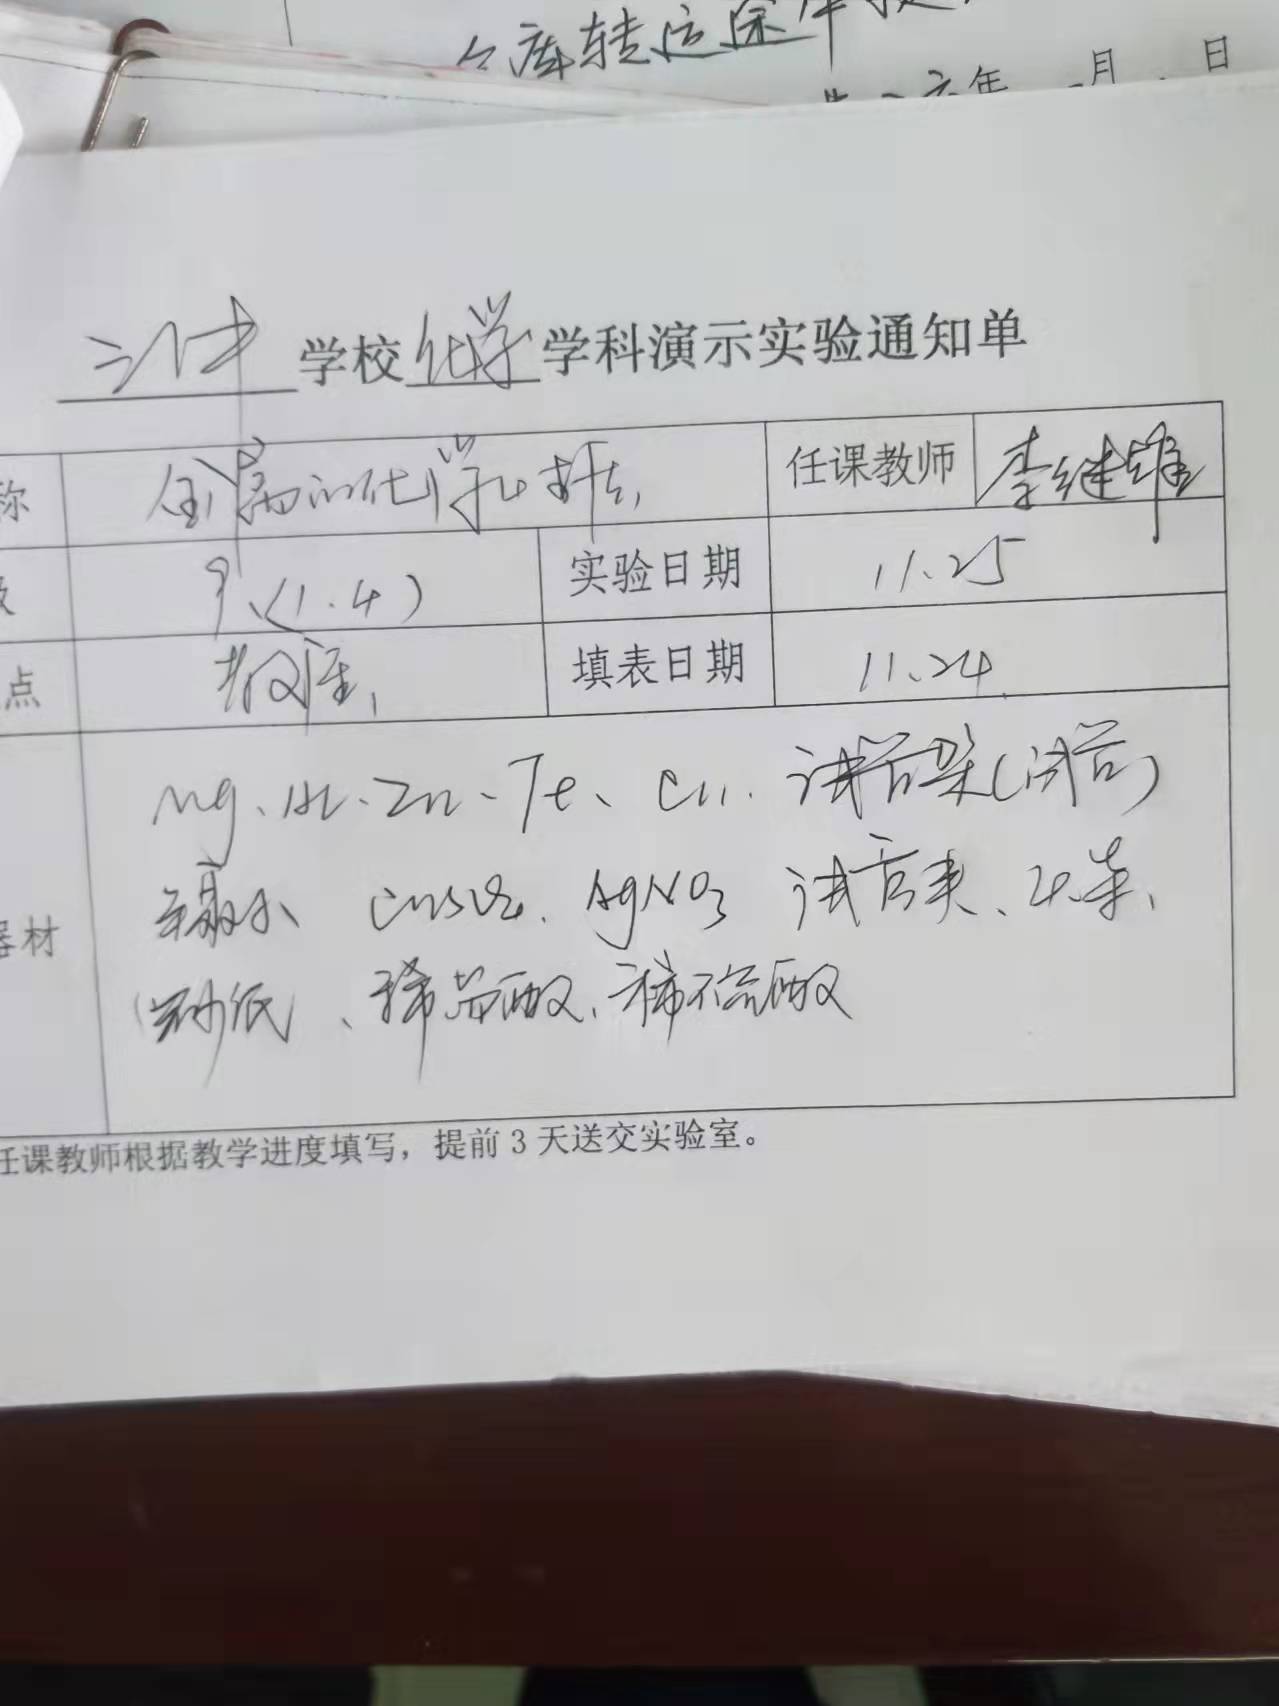 仓库转运途中
年 月 日
学校化学学科演示实验通知单
称 金属的化学性质 任课教师 李继雄
九(1.4) 实验日期 11.25
点 教室 填表日期 11.24
Mg、Al、Zn、Fe、Cu、试管架(试管)
器材 CuSO4、AgNO3 试管夹、
砂纸、稀盐酸、稀硫酸
任课教师根据教学进度填写，提前3天送交实验室。